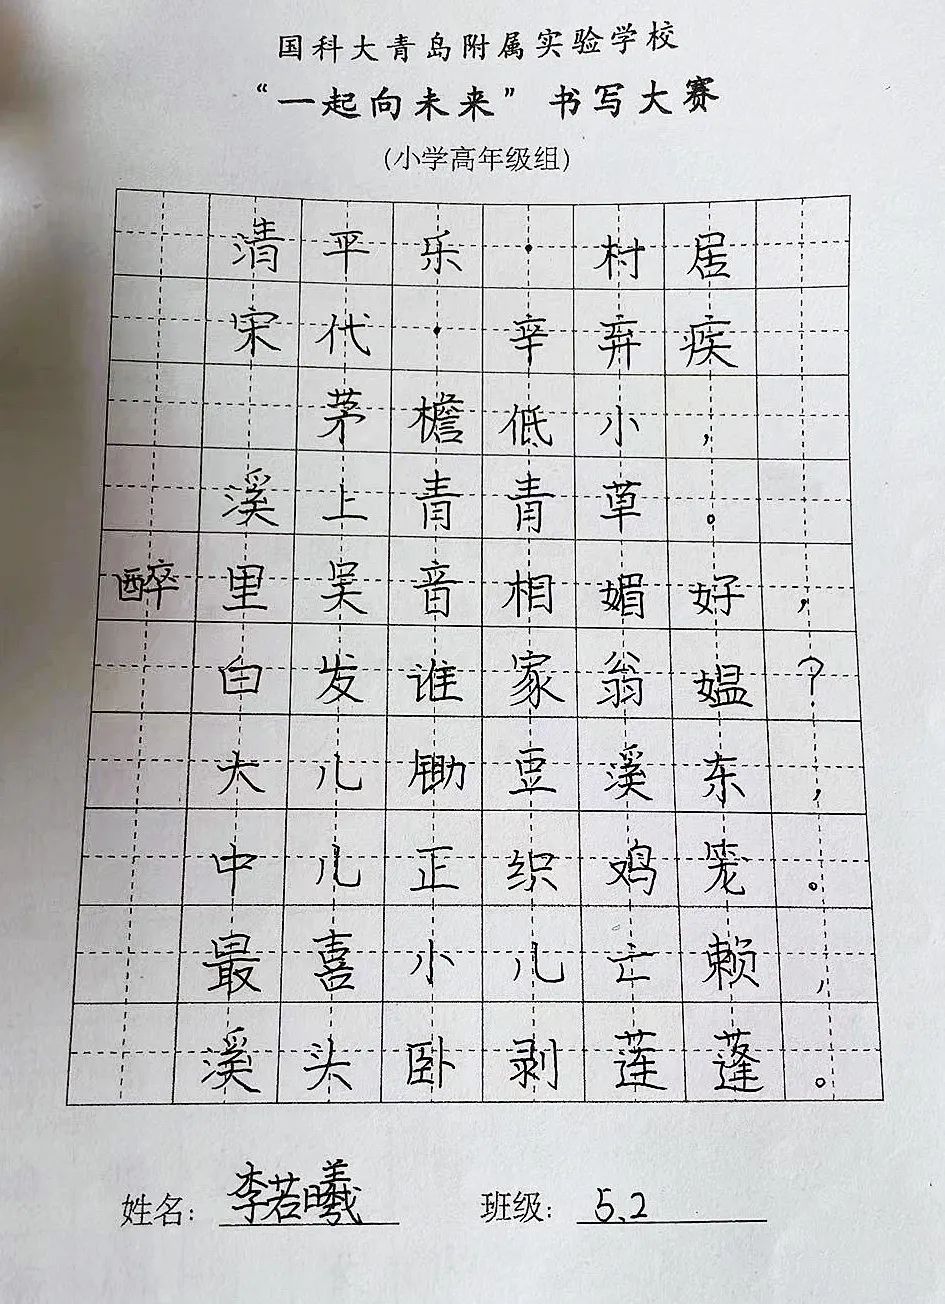 国科大青岛附属实验学校
“一起向未来”书写大赛
（小学高年级组）
清平乐·村居
宋代·辛弃疾
茅檐低小，
溪上青青草。
醉里吴音相媚好，
白发谁家翁媪？
大儿锄豆溪东，
中儿正织鸡笼。
最喜小儿亡赖，
溪头卧剥莲蓬。
姓名：李若曦 班级：5.2